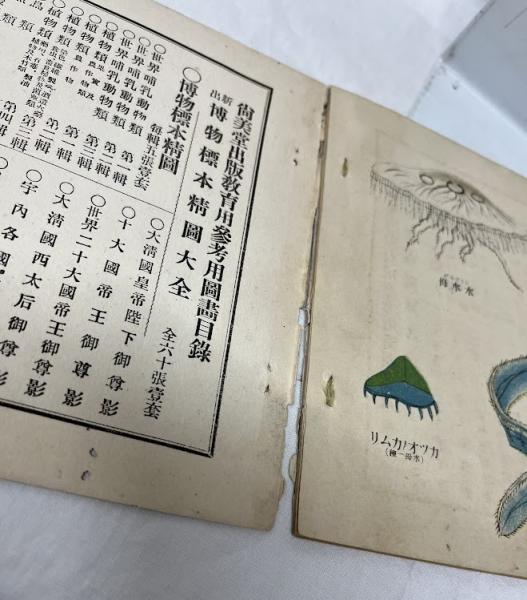 尙美堂出版敎育用參考用圖畫目錄
新出 博物標本精圖大全
○博物標本精圖
每輯五張壹套
○世界哺乳動物類 第一輯
○世界哺乳動物類 第二輯
○植物類
○植物類
○植物類
鳥類 第四輯
全六十張壹套
○大清國皇帝陛下御尊影
○十大國帝王御尊影
○世界二十大國帝王御尊影
○大清國西太后御尊影
○宇內各國
水水母
カツオノカムリ
(水母一種)